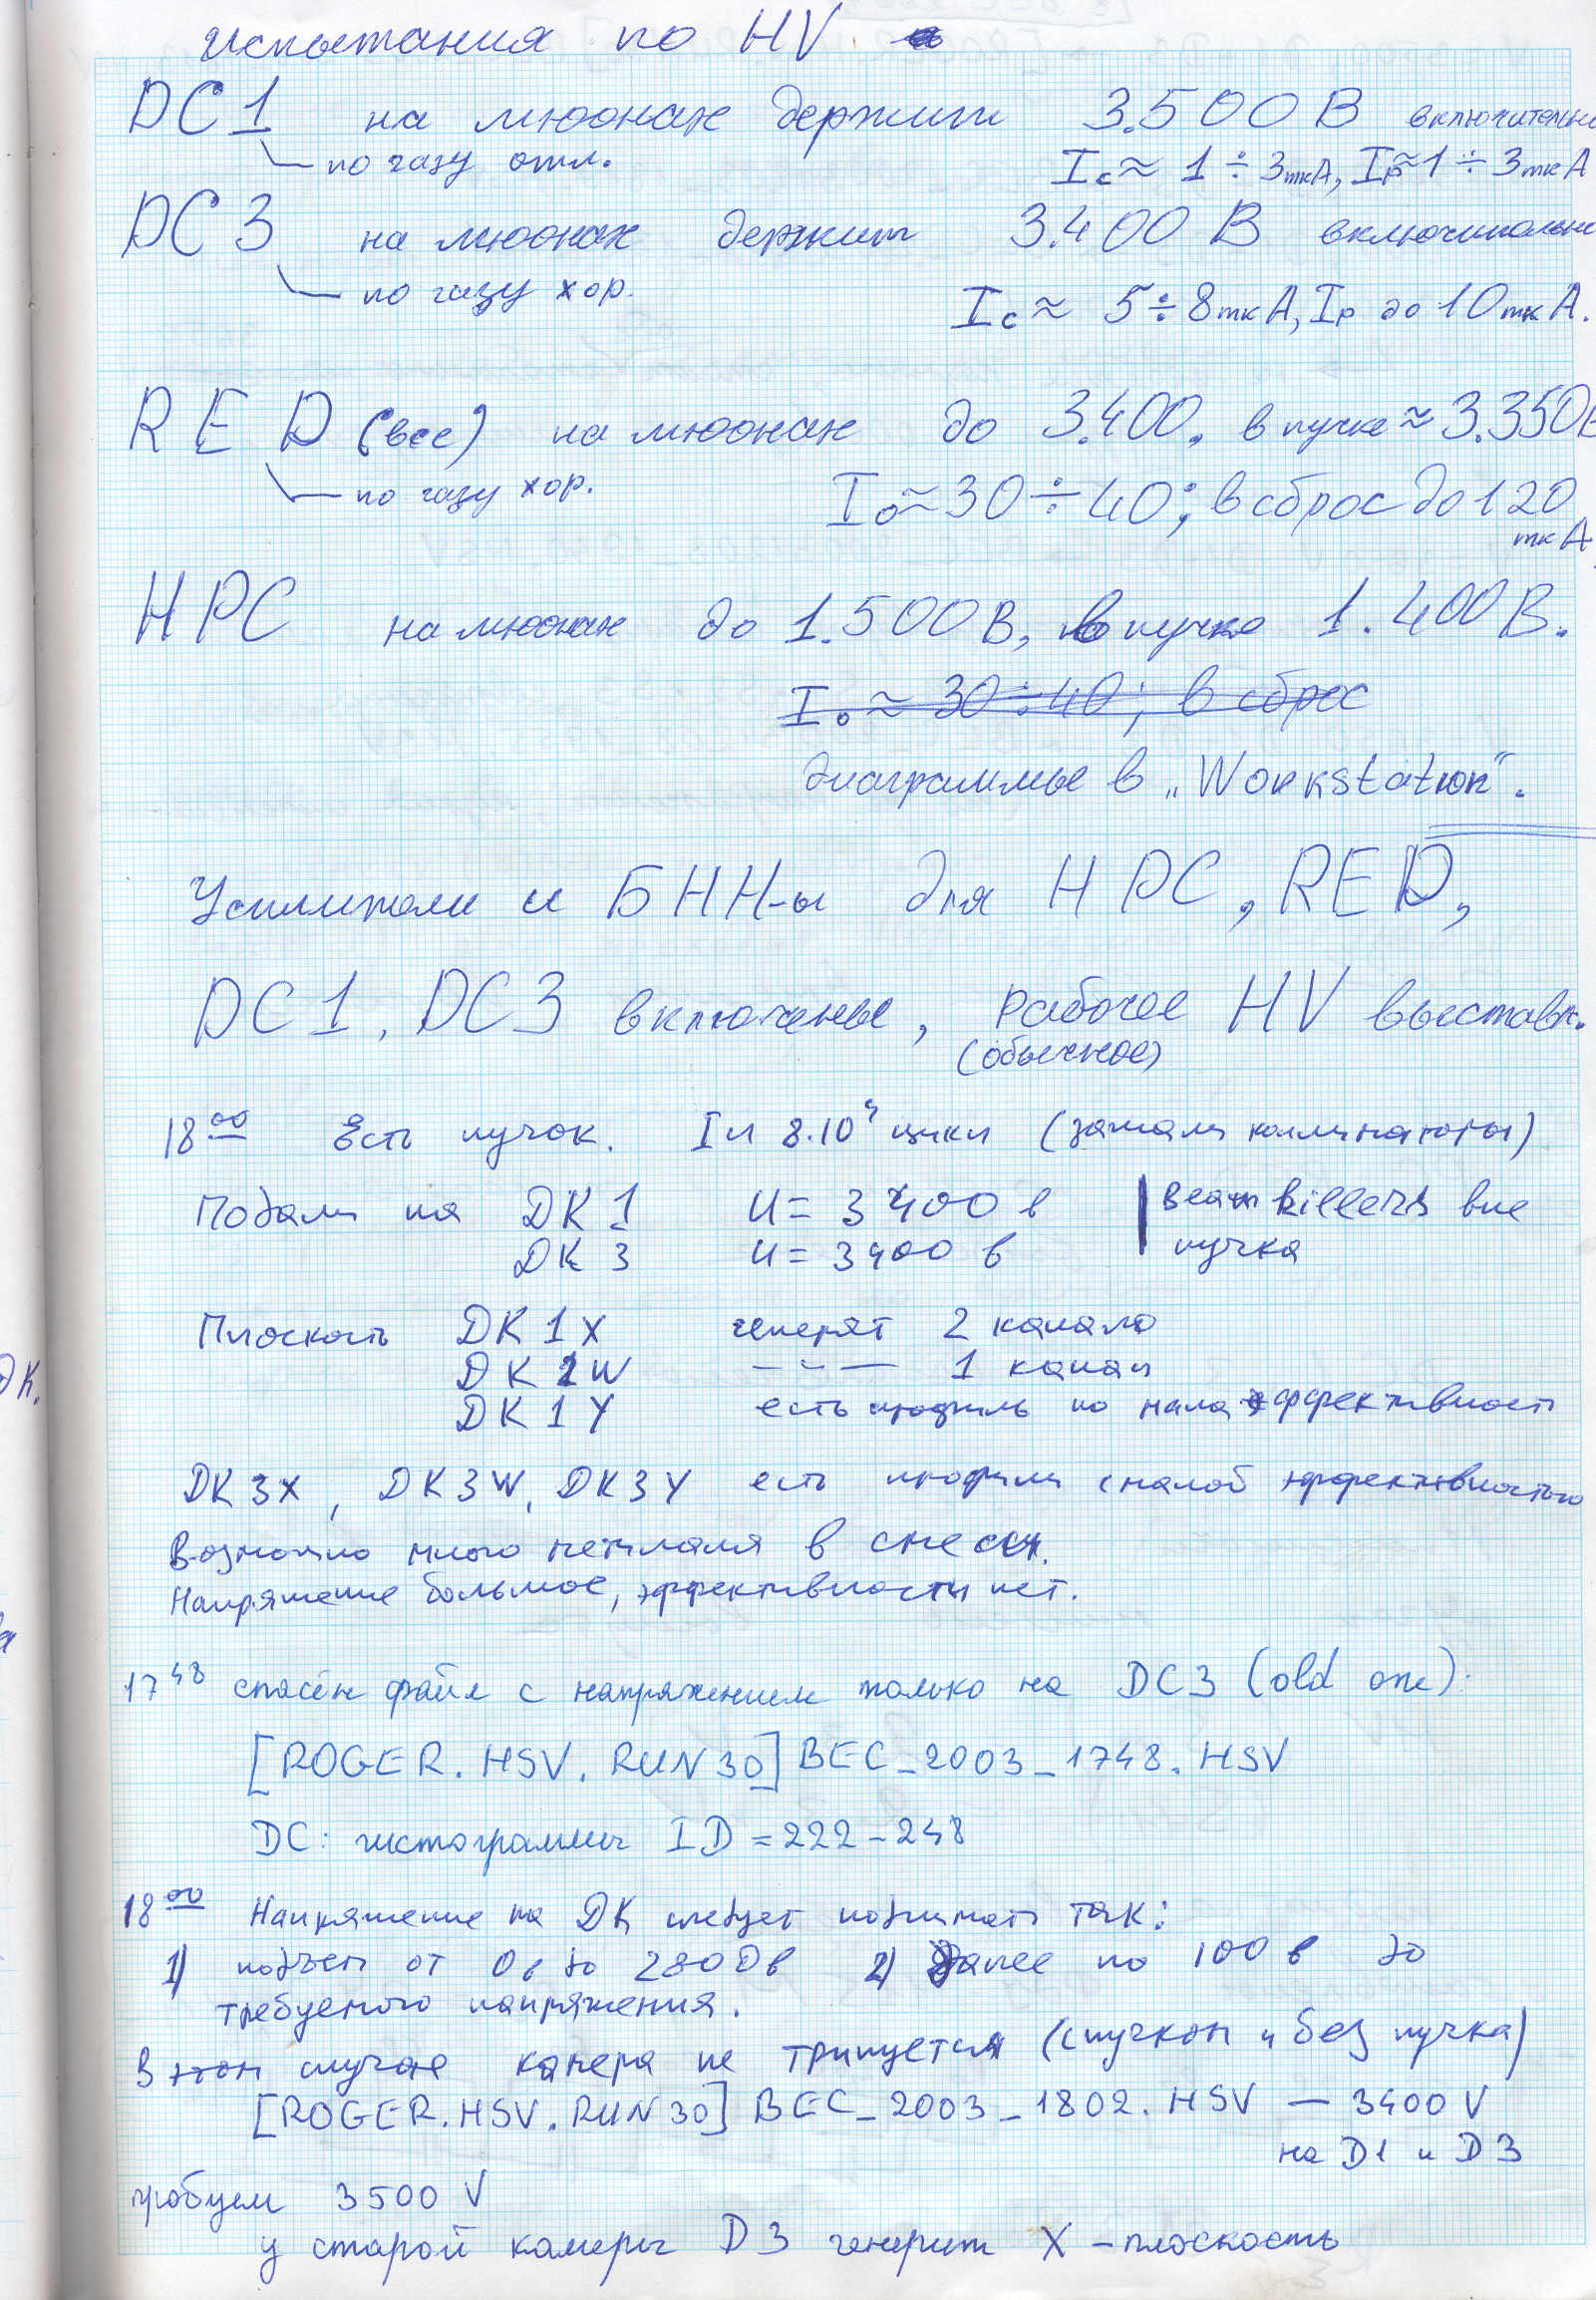 испытания по HV
DC1 на мюонах держит 3.500 В включительно
по газу отл. Ic ≈ 1 ÷ 3мкА, Ip ≈ 1 ÷ 3мкА
DC3 на мюонах держит 3.400 В включительно
по газу хор.
Ic ≈ 5 ÷ 8мкА, Ip до 10мкА.
RED (все) на мюонах до 3.400, в пучке ≈ 3.350В
по газу хор. Io ≈ 30 ÷ 40; в сброс до 120 мкА
HPC на мюонах до 1.500В, в пучке 1.400В.
Io ≈ 30 ÷ 40; в сброс
диаграммы в „Workstation“.
Усилители и БНН-ы для HPC, RED,
DC1, DC3 включены, рабочее HV выставл.
(обычное)
18 00 Есть пучок. I м 8.10⁴ цикл (зажали коллиматоры)
Подали на ДК 1 U = 3400 в | Beam killers вне
ДК 3 U = 3400 в | пучка
Плоскость ДК 1X генерят 2 канала
ДК 1W — " — 1 канал
ДК 1Y есть профиль но мала эффективность
ДК 3X, ДК3W, ДК3Y есть профили с малой эффективностью
Возможно много метилаля в смеси.
Напряжение большое, эффективности нет.
17 48 спасён файл с напряжением только на DC3 (old one):
[ROGER.HSV.RUN30]BEC_2003_1748.HSV
DC: гистограммы ID = 222 – 248
18 00 Напряжение на ДК следует поднимать так:
1) подъем от 0в до 2800в 2) Далее по 100 в до
требуемого напряжения.
В этом случае камера не трипуется (с пучком и без пучка)
[ROGER.HSV.RUN30] BEC_2003_1802.HSV — 3400 V
на D1 и D3
пробуем 3500 V
у старой камеры D3 генерит X – плоскость